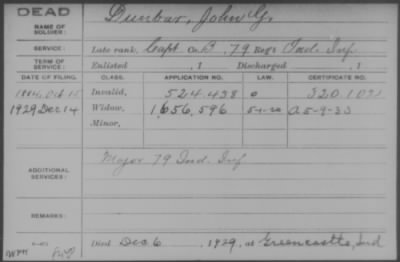 DEAD
NAME OF SOLDIER: Dunbar, John G.
SERVICE: Late rank, Capt Co. B, 79 Reg't Ind. Inf
TERM OF SERVICE: Enlisted , 1 Discharged , 1
DATE OF FILING. CLASS. APPLICATION NO. LAW. CERTIFICATE NO.
1884, Oct 15 Invalid, 524.438
1929 Dec 14 Widow, 1,656,596 5-1-20 A 5-9-33
Minor,
ADDITIONAL SERVICES: Major 79 Ind. Inf
REMARKS:
Died Dec 6, 1929, at Greencastle, Ind